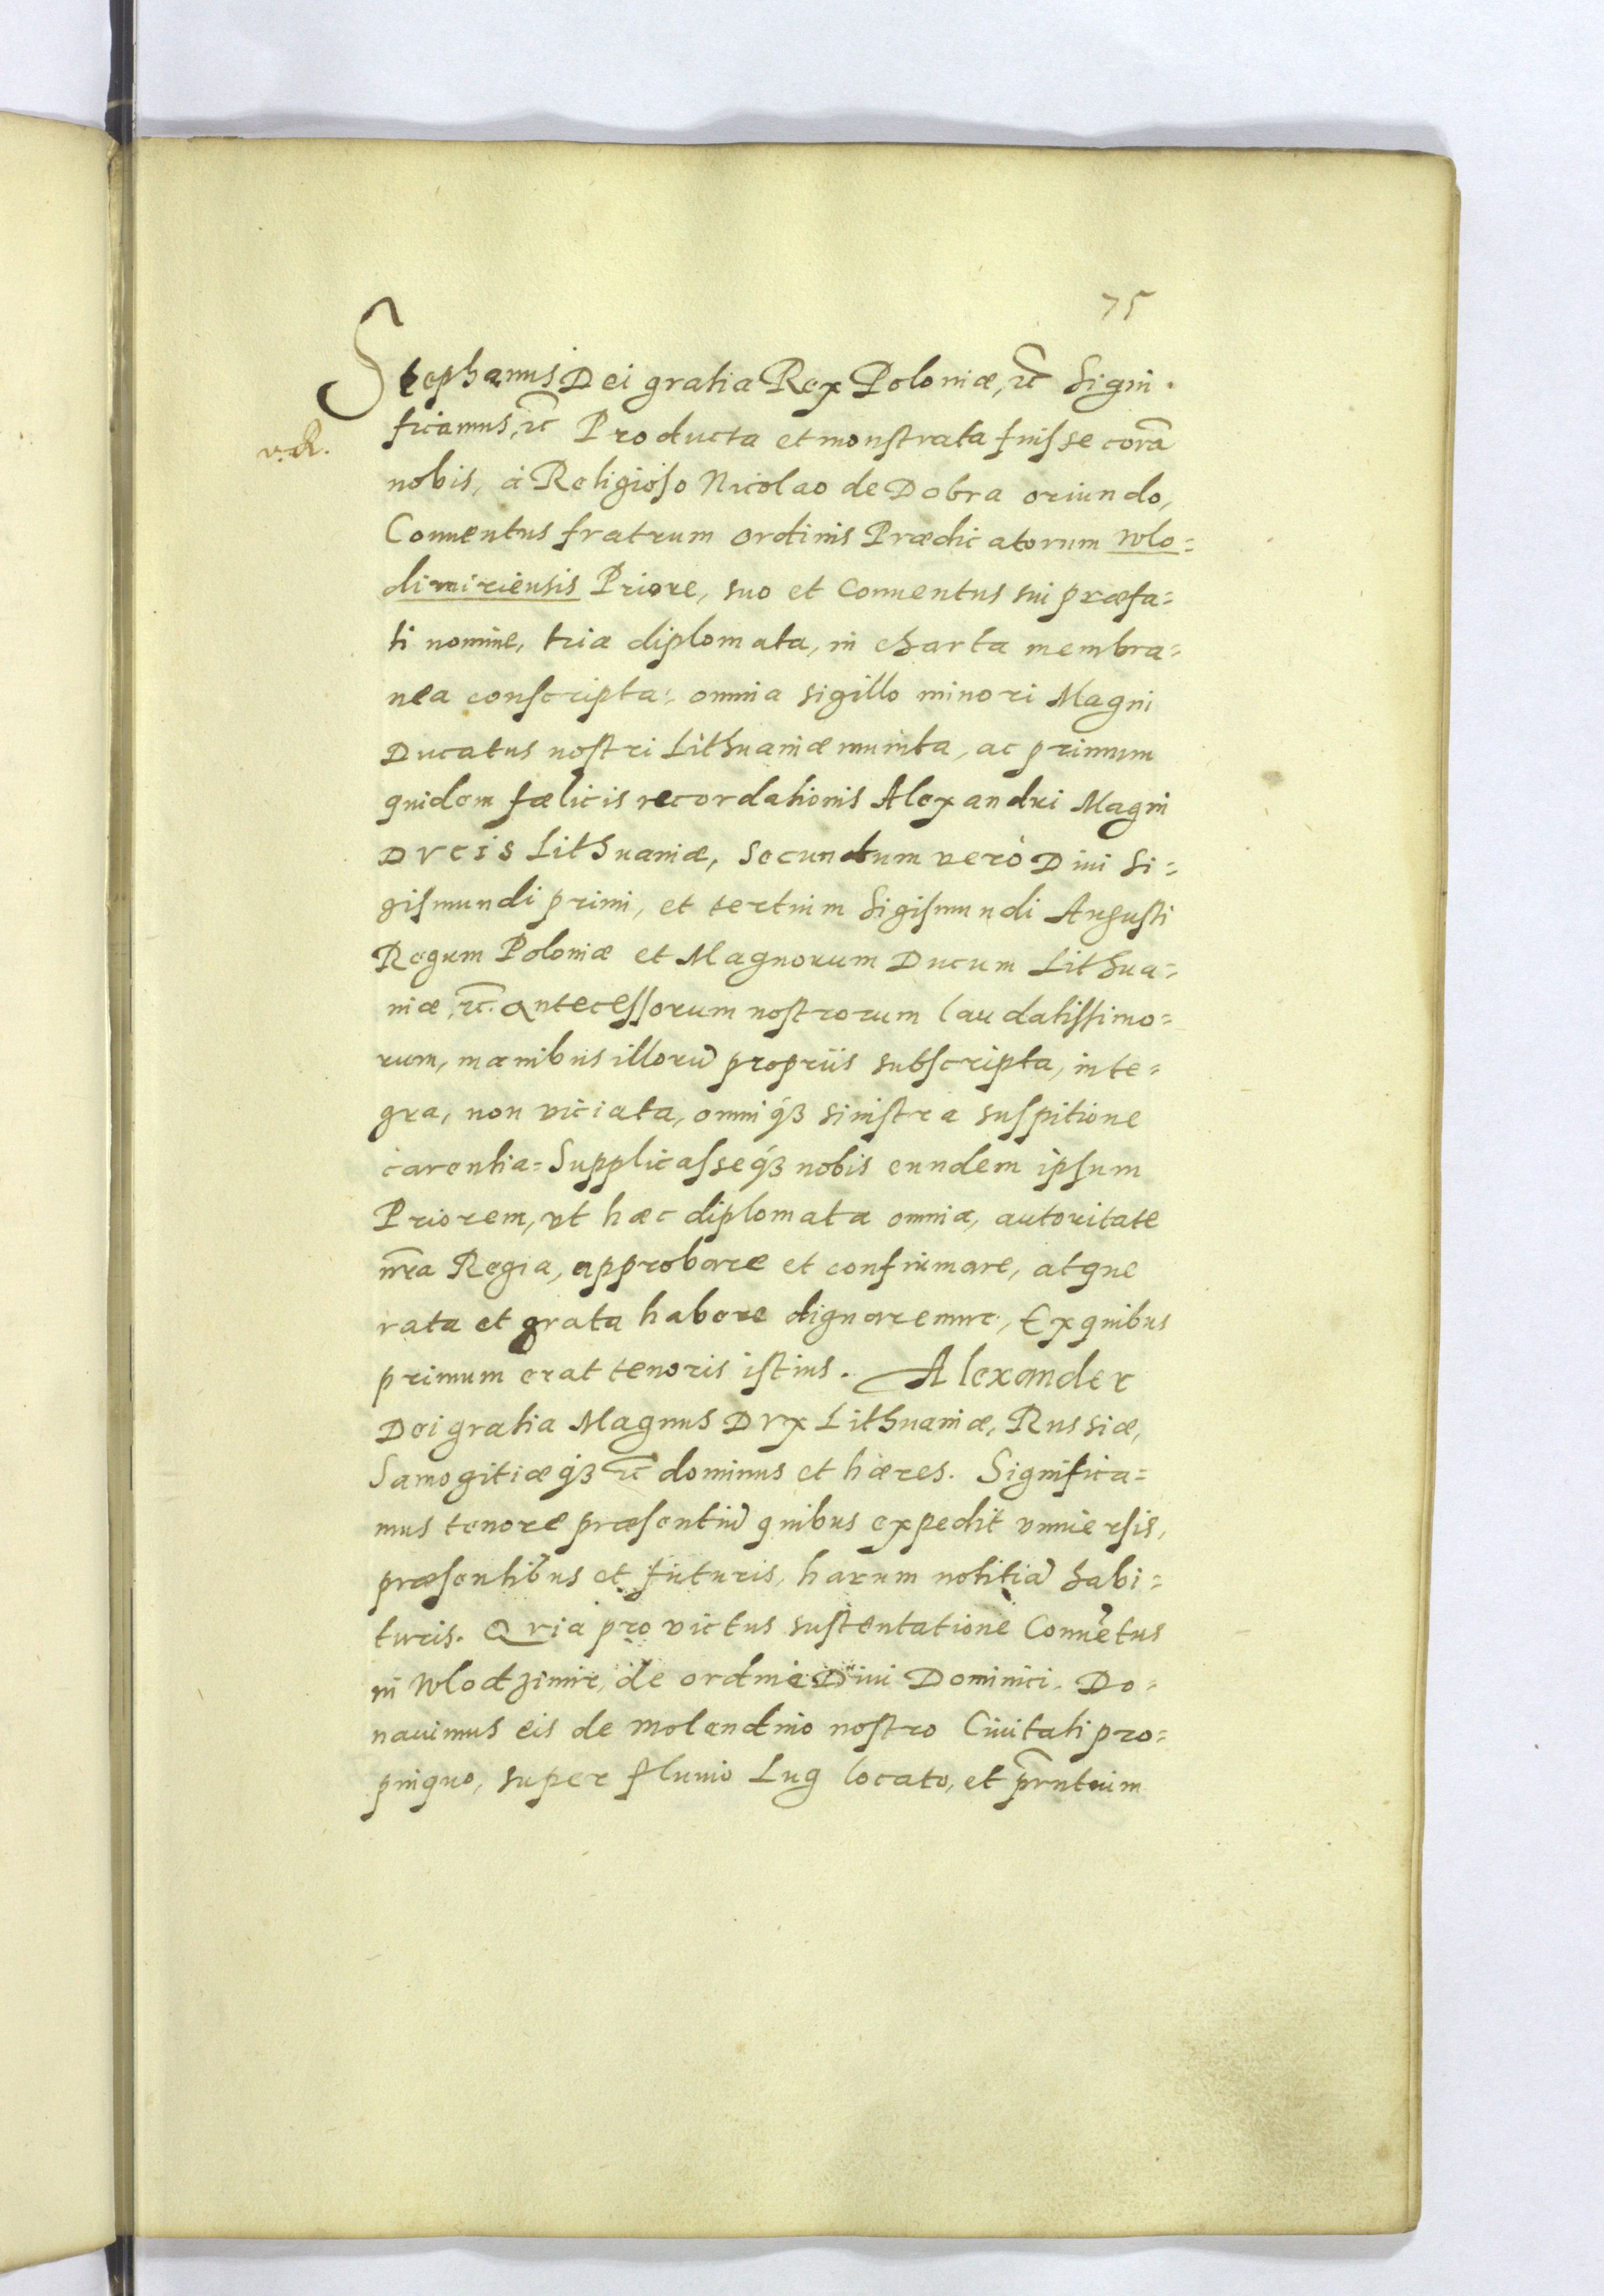 75
Stephanus Dei gratia Rex Poloniæ, ꝛc̃ Signi-
ficamus, ꝛc̃ Producta et monstrata fuisse corã
v. R.
nobis, à Religioso Nicolao de Dobra oriundo,
Conuentus fratrum ordinis Prædicatorum Wlo=
dimiriensis Priore, suo et Conuentus sui præfa=
ti nomine, tria diplomata, in charta membra=
nea conscripta: omnia sigillo minori Magni
Ducatus nostri Lithuaniæ munita, ac primum
quidem fælicis recordationis Alexandri Magni
Dvcis Lithuaniæ, Secundum verò Diui Si=
gismundi primi, et tertium Sigismundi Augusti
Regum Poloniæ et Magnorum Ducum Lithua=
niæ, ꝛc̃. antecessorum nostrorum laudatissimo=
rum, manibus illorũ propriis subscripta, inte=
gra, non viciata, omniq́ꝫ sinistra suspitione
carentia= Supplicasseq́ꝫ nobis eundem ipsum
Priorem, vt hæc diplomata omnia, autoritate
nr̃a Regia, approbare et confirmare, atque
rata et grata habere dignaremur, Ex quibus
primum erat tenoris istius. Alexander
Dei gratia Magnus Dvx Lithuaniæ, Russiæ,
Samogitiæq́ꝫ ꝛc̃ dominus et hæres. Significa=
mus tenore præsentiũ quibus expedit vniuersis,
præsentibus et futuris, harum notitiã habi=
turis. Qvia pro victus sustentatione Conuẽtus
in Wlodzimir, de ordine Diui Dominici. Do=
nauimus eis de molendino nostro Ciuitati pro=
pinquo, super fluuio Lug locato, et